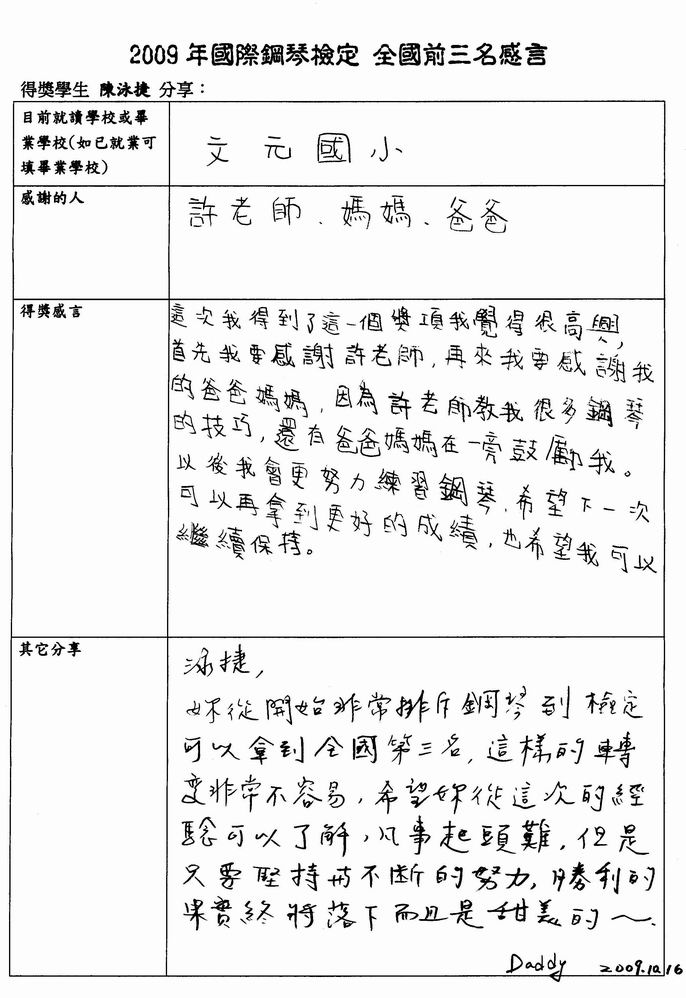 2009 年國際鋼琴檢定 全國前三名感言
得獎學生 陳泳捷 分享：
目前就讀學校或畢
業學校(如已就業可
填畢業學校)
文元國小
感謝的人
許老師、媽媽、爸爸
得獎感言
這次我得到了這一個獎項我覺得很高興,
首先我要感謝許老師,再來我要感謝我
的爸爸媽媽,因為許老師教我很多鋼琴
的技巧,還有爸爸媽媽在一旁鼓勵我。
以後我會更努力練習鋼琴,希望下一次
可以再拿到更好的成績,也希望我可以
繼續保持。
其它分享
泳捷,
妳從開始非常排斥鋼琴到檢定
可以拿到全國第三名,這樣的轉
變非常不容易,希望妳從這次的經
驗可以了解,凡事起頭難,但是
只要堅持並不斷的努力,勝利的
果實終將落下而且是甜美的~.
Daddy 2009.10.16